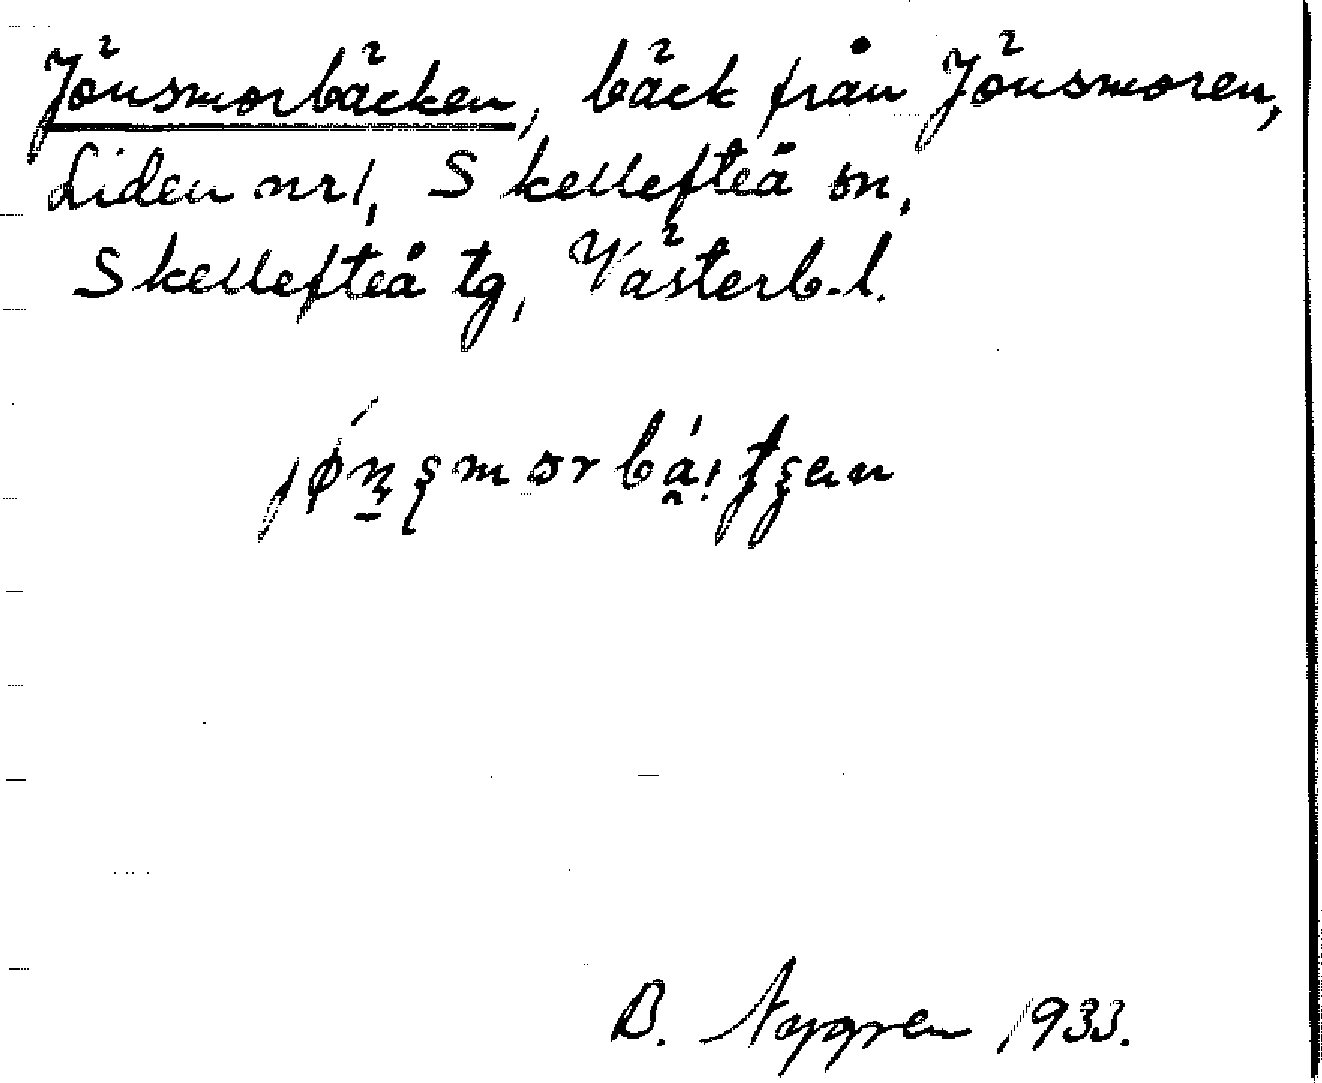 Jönsmorbäcken, bäck från Jönsmoren,
Liden nr 1, Skellefteå sn,
Skellefteå tg, Västerb. l.
B. Nygren 1933.